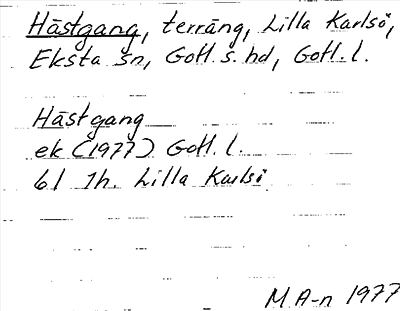 Hästgang, terräng, Lilla Karlsö,
Eksta sn, Gotl. s. hd, Gotl. l.
Hästgang
ek (1977) Gotl. l.
6I 1h. Lilla Karlsö
M A-n 1977